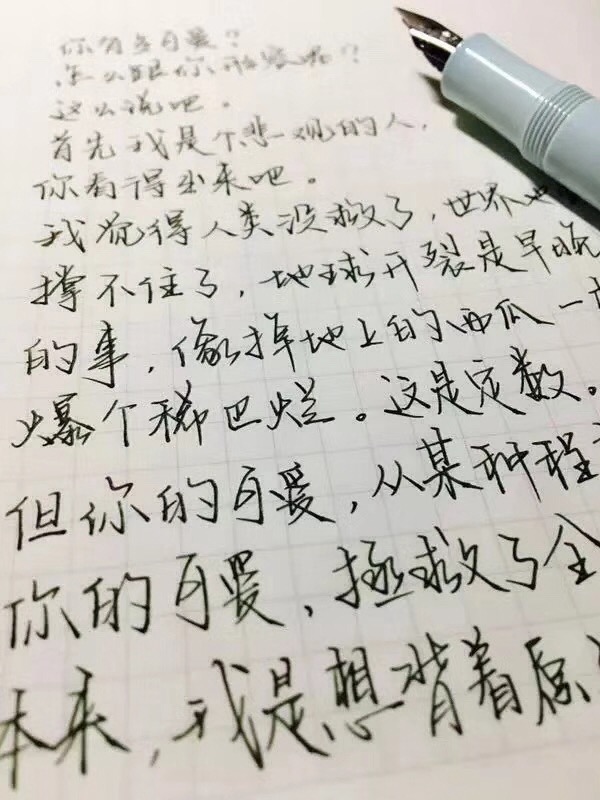 你有多可爱？
怎么跟你形容呢？
这么说吧。
首先我是个悲观的人，
你看得出来吧。
我觉得人类没救了，世界也
撑不住了，地球开裂是早晚
的事，像掉地上的西瓜一
爆个稀巴烂。这是定数。
但你的可爱，从某种程
你的可爱，拯救了全
本来，我是想背着原